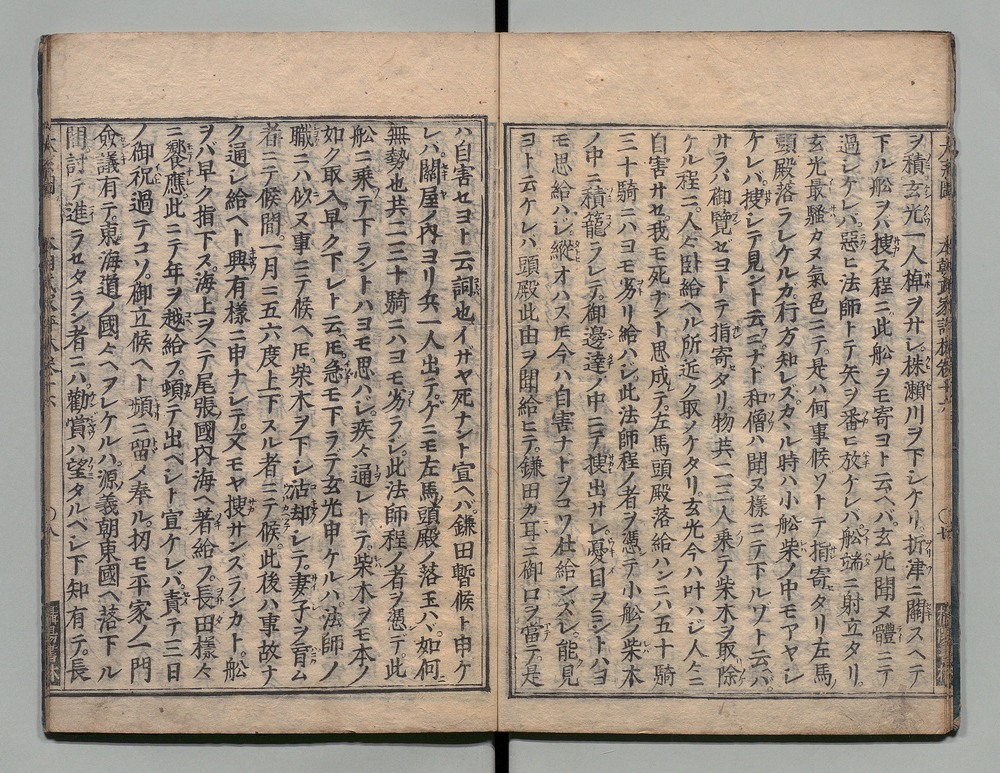 ヲ積玄光一人棹ヲサシ株瀬川ヲ下シケリ折津ニ關スヘテ
下ル舩ヲバ捜ス程ニ此舩ヲモ寄ヨト云ヘバ玄光聞ヌ體ニテ
過シケレバ惡ヒ法師トテ矢ヲ番ヒ放ケレバ舩端ニ射立タリ
玄光最騒カヌ氣色ニテ是ハ何事候ソトテ指寄タリ左馬
頭殿落ラレケルカ行方知レズカヽル時ハ小舩柴ノ中モアヤシ
ケレバ捜シテ見ント云ニナド和僧ハ聞ヌ樣ニテ下ルソト云ハ
サラバ御覽ゼヨトテ指寄タリ物共二三人乗テ柴木ヲ取除
ケル程ニ人々臥給ヘル所近ク取ノケタリ玄光今ハ叶ハジ人々ニ
自害サセ我モ死ナント思成テ左馬頭殿落給ハンニハ五十騎
三十騎ニハヨモ劣リ給ハシ此法師程ノ者ヲ憑テ小舩ノ柴木
ノ中ニ積籠ラレテ御邊達ノ中ニテ捜出サレ憂目ヲミントハヨ
モ思給ハシ縱オハス𪜈今ハ自害ナトヲコソ仕給ンズレ能見
ヨト云ケレハ頭殿此由ヲ聞給ヒテ鎌田カ耳ニ御口ヲ當テ是
ハ自害セヨト云詞也イザヤ死ナント宣ヘバ鎌田暫候ト申ケ
レハ關屋ノ内ヨリ兵一人出テゲニモ左馬頭殿ノ落玉ハヾ如何
無勢也共二三十騎ニハヨモ劣ラシ此法師程ノ者ヲ憑テ此
舩ニ乗テ下ラントハヨモ思ハシ疾々通レトテ柴木ヲモ本ノ
如ク取入早ク下レト云𪜈急モ下ラデ玄光申ケルハ法師ノ
職ニハ似ヌ事ニテ候ヘ𪜈柴木ヲ下シ沽却シテ妻子ヲ育ム
者ニテ候間一月ニ五六度上下スル者ニテ候此後ハ事故ナ
ク通シ給ヘト興有樣ニ申ナシテ又モヤ捜サンズランカト舩
ヲバ早ク指下ス海上ヲヘテ尾張國内海ヘ著給フ長田樣々
ニ饗應此ニテ年ヲ越給フ頓テ出ベシト宣ケレバ責テ三日
ノ御祝過テコソ御立候ヘト頻ニ留メ奉ル扨モ平家ノ一門
僉議有テ東海道ノ國々ヘフレケルハ源義朝東國ヘ落下ル
間討テ進ラセタラン者ニハ勸賞ハ望タルベシ下知有テ長